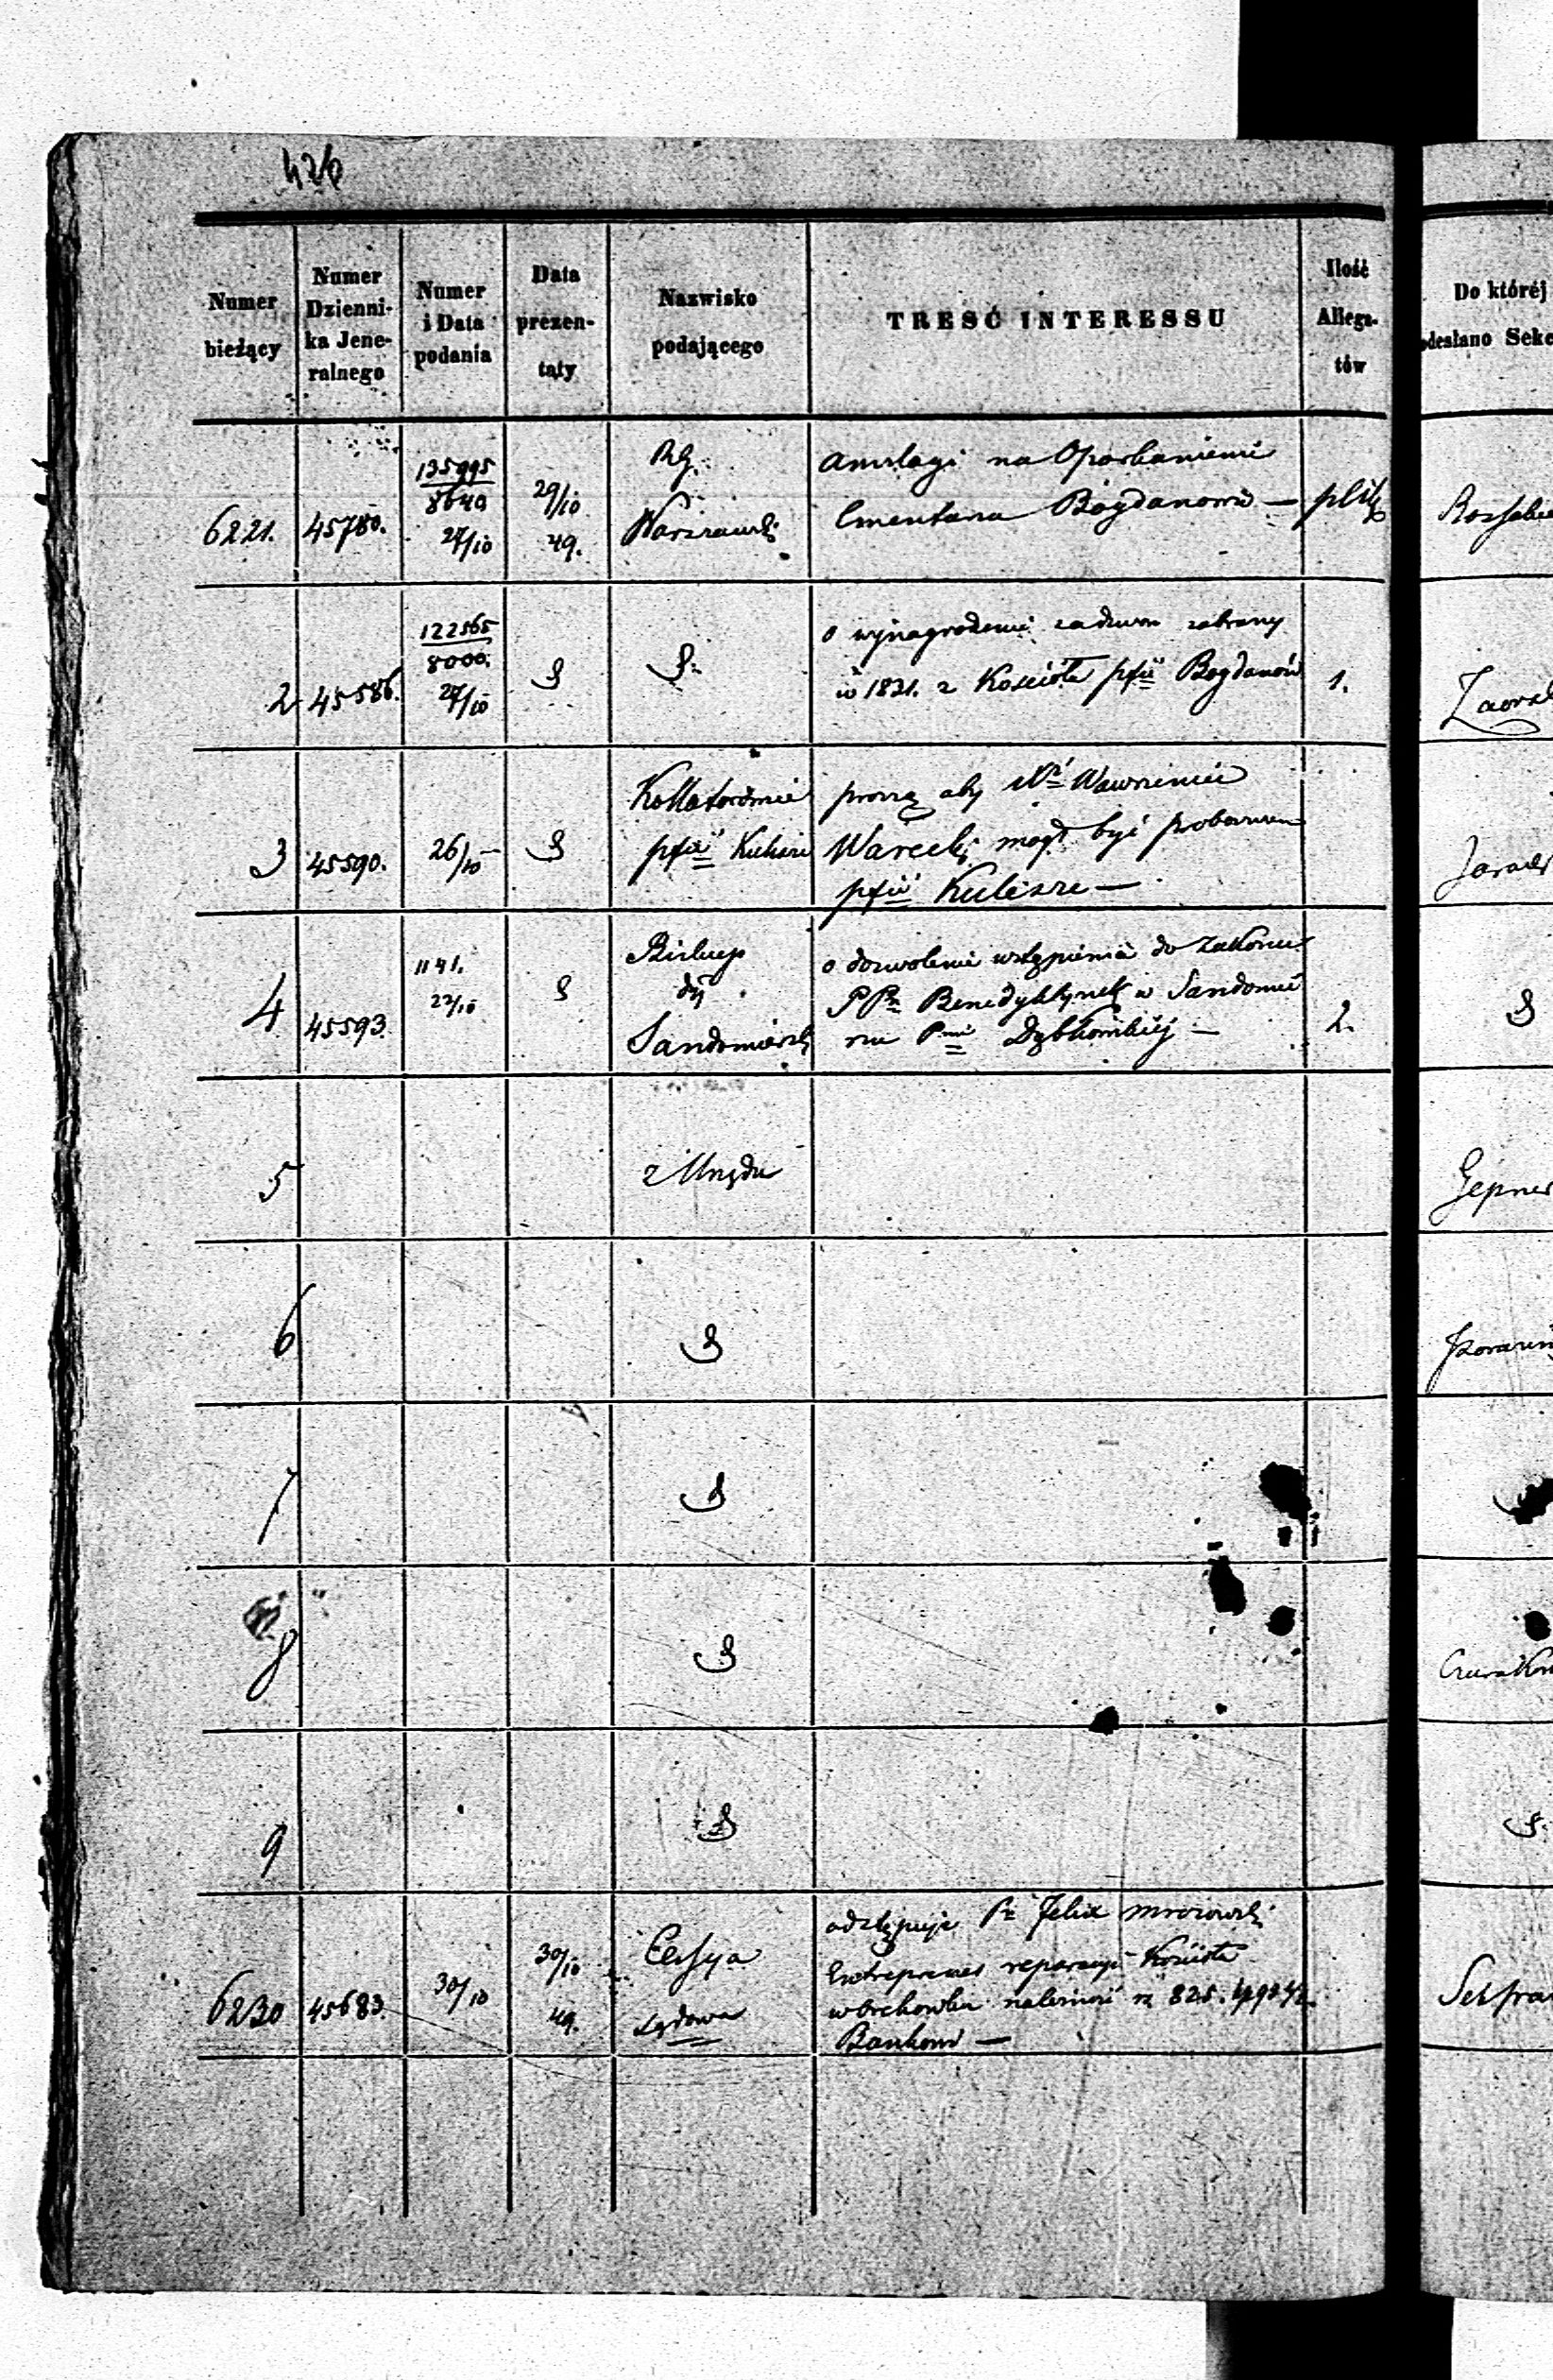 426
Numer bieżący
Numer Dzienni- ka Jene- ralnego
Numer i Data podania
Data prezen- taty
Nazwisko podającego
TRESĆ INTERESSU
Ilość Allega- tów
Do któréj
odesłano Sekc
6221. 45780. 135995/8640 27/10 29/10 49. RG. Warszawski
Anszlagi na Oparkanienie
Cmentarza Bogdanowie —
2 45586. 122565/8000. 27/10
o wynagrodzenie za dzwon zabrany
w 1831. z Kościoła pfii Bogdanów 1.
3 45590. 26/10 Kollatorowie pfii Kulesze
proszą aby Wawrzeniec
Warecki mógł być proboszczem
pfii Kulesze —
4 45593. 1141. 27/10 Biskup dyi Sandomierski
o dozwolenie wstąpienia do Zakonu
PPn Benedyktynek w Sandomie
rzu Pnnie 2.
5 z Urzędu Gepner
6
7
8
9
6230 45683. 30/10 30/10 49. Cessya Sądowa
odstępuje Pn Felix Mrozowski
Entreprener reparacyi Kościoła
należność rs 825.
Bankowi —